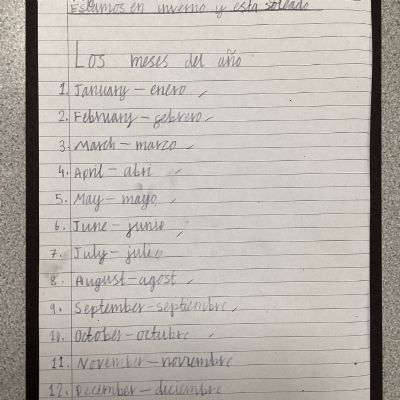 Estamos en inverno y está soleado
Los meses del año
1. January – enero
2. February – febrero
3. March – marzo
4. April – abri
5. May – mayo
6. June – junio
7. July – julio
8. August – agost
9. September – septiembre
10. October – octubre
11. November – noviembre
12. December – diciembre